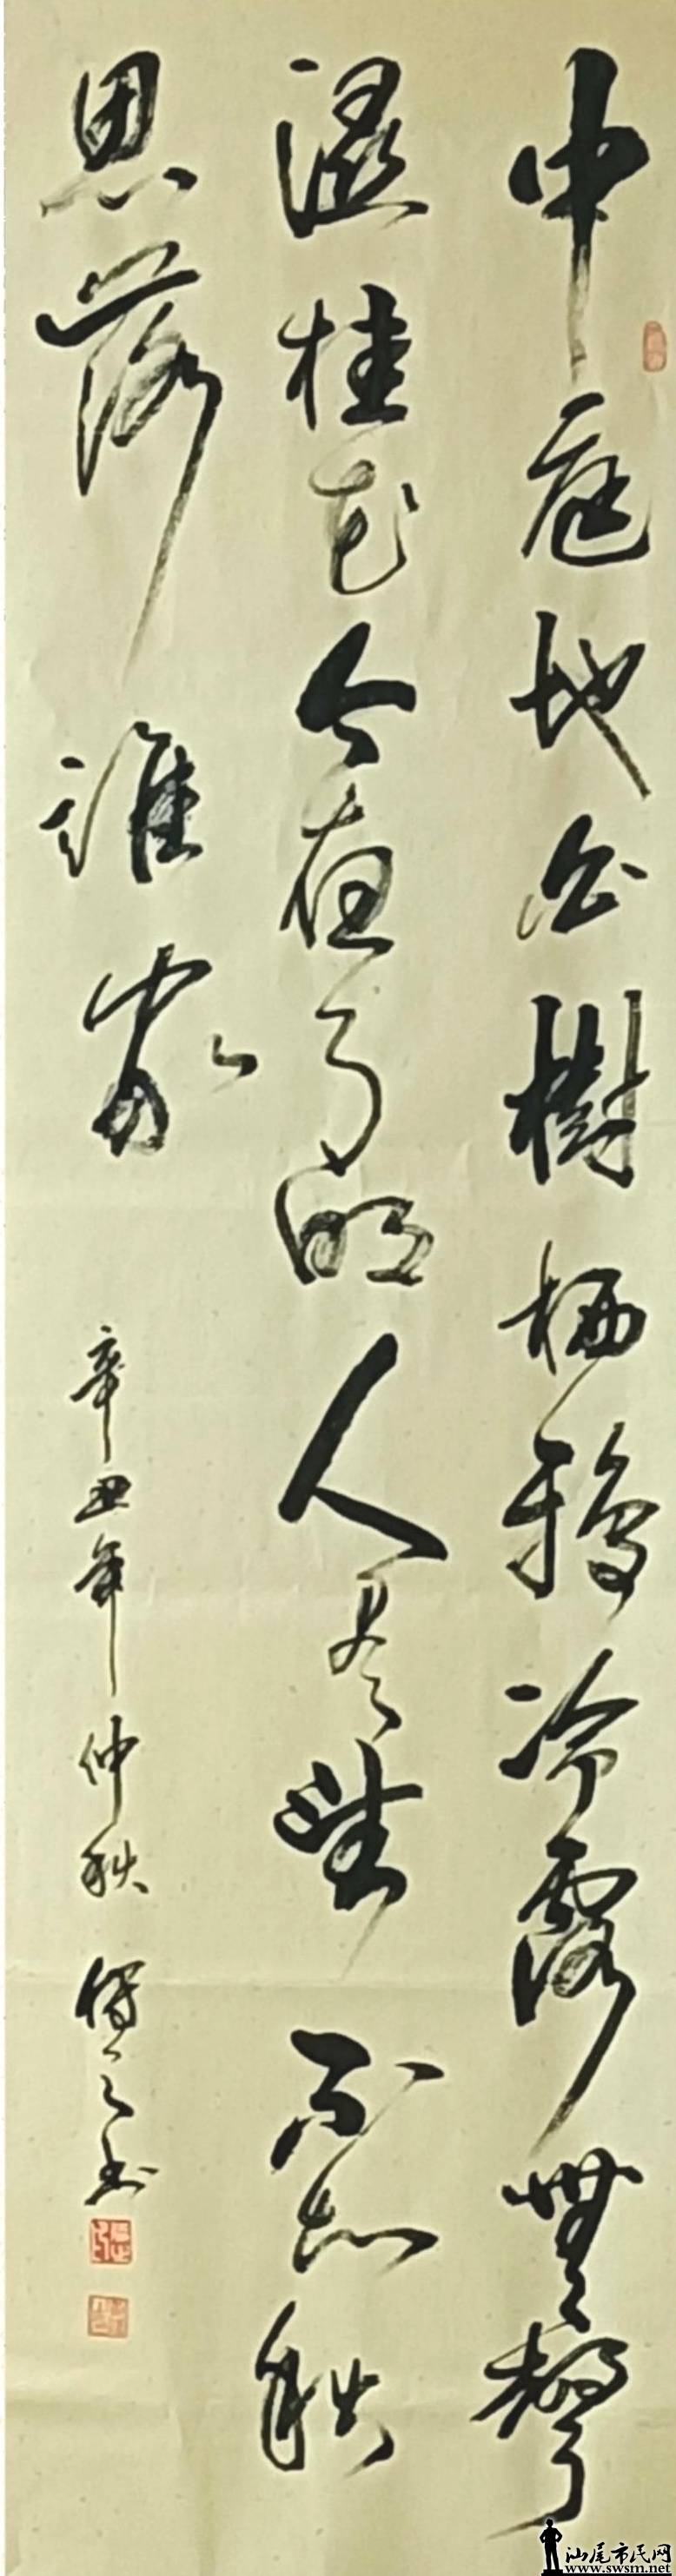 中庭地白樹栖鴉冷露無聲
濕桂花今夜月明人盡望不知秋
思落誰家
辛丑年仲秋
之書
汕尾市民网
www.swsm.net